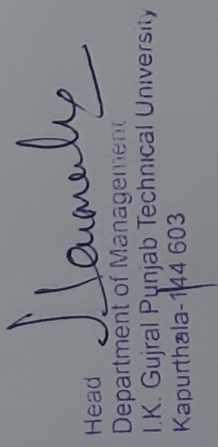 Head
Department of Management
I.K. Gujral Punjab Technical University
Kapurthala-144 603